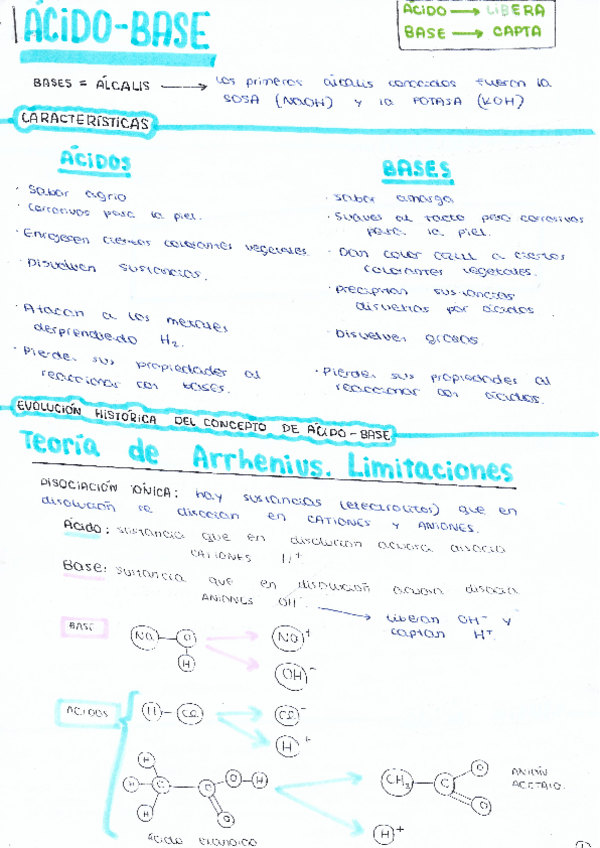 ÁCIDO-BASE
ÁCIDO → LIBERA
BASE → CAPTA
BASES = ÁLCALIS → Los primeros álcalis conocidos fueron la
SOSA (NaOH) y la POTASA (KOH)
CARACTERÍSTICAS
ÁCIDOS
· Sabor agrio
· Corrosivos para la piel.
· Enrojecen ciertos colorantes vegetales.
· Disuelven sustancias.
· Atacan a los metales
desprendiendo H₂.
· Pierden sus propiedades al
reaccionar con bases.
BASES
· Sabor amargo
· Suaves al tacto pero corrosivos
para la piel.
· Dan color azul a ciertos
colorantes vegetales.
· Precipitan sustancias
disueltas por ácidos.
· Disuelven grasas.
· Pierden sus propiedades al
reaccionar con ácidos.
EVOLUCIÓN HISTÓRICA DEL CONCEPTO DE ÁCIDO-BASE
Teoría de Arrhenius. Limitaciones
DISOCIACIÓN IÓNICA: hay sustancias (electrolitos) que en
disolución se disocian en CATIONES y ANIONES.
Ácido: sustancia que en disolución acuosa disocia
CATIONES H⁺
Base: sustancia que en disolución acuosa disocia
ANIONES OH⁻ → Liberan OH⁻ y
captan H⁺
BASE
Na O H
Na⁺
OH⁻
ÁCIDOS
H - Cl
Cl⁻
H⁺
H H C H O O H O
CH₃ C O O
ANIÓN
ACETATO
H⁺
ácido etanoico